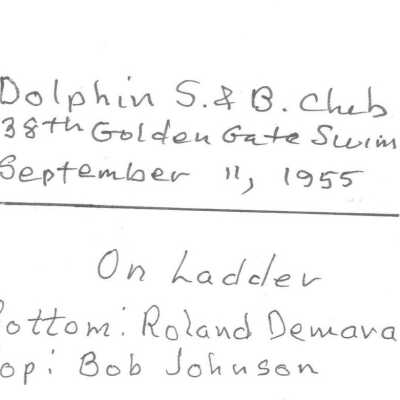 Dolphin S. & B. Club
38th Golden Gate Swim
September 11, 1955
On Ladder
Bottom: Roland Demara
Top: Bob Johnson